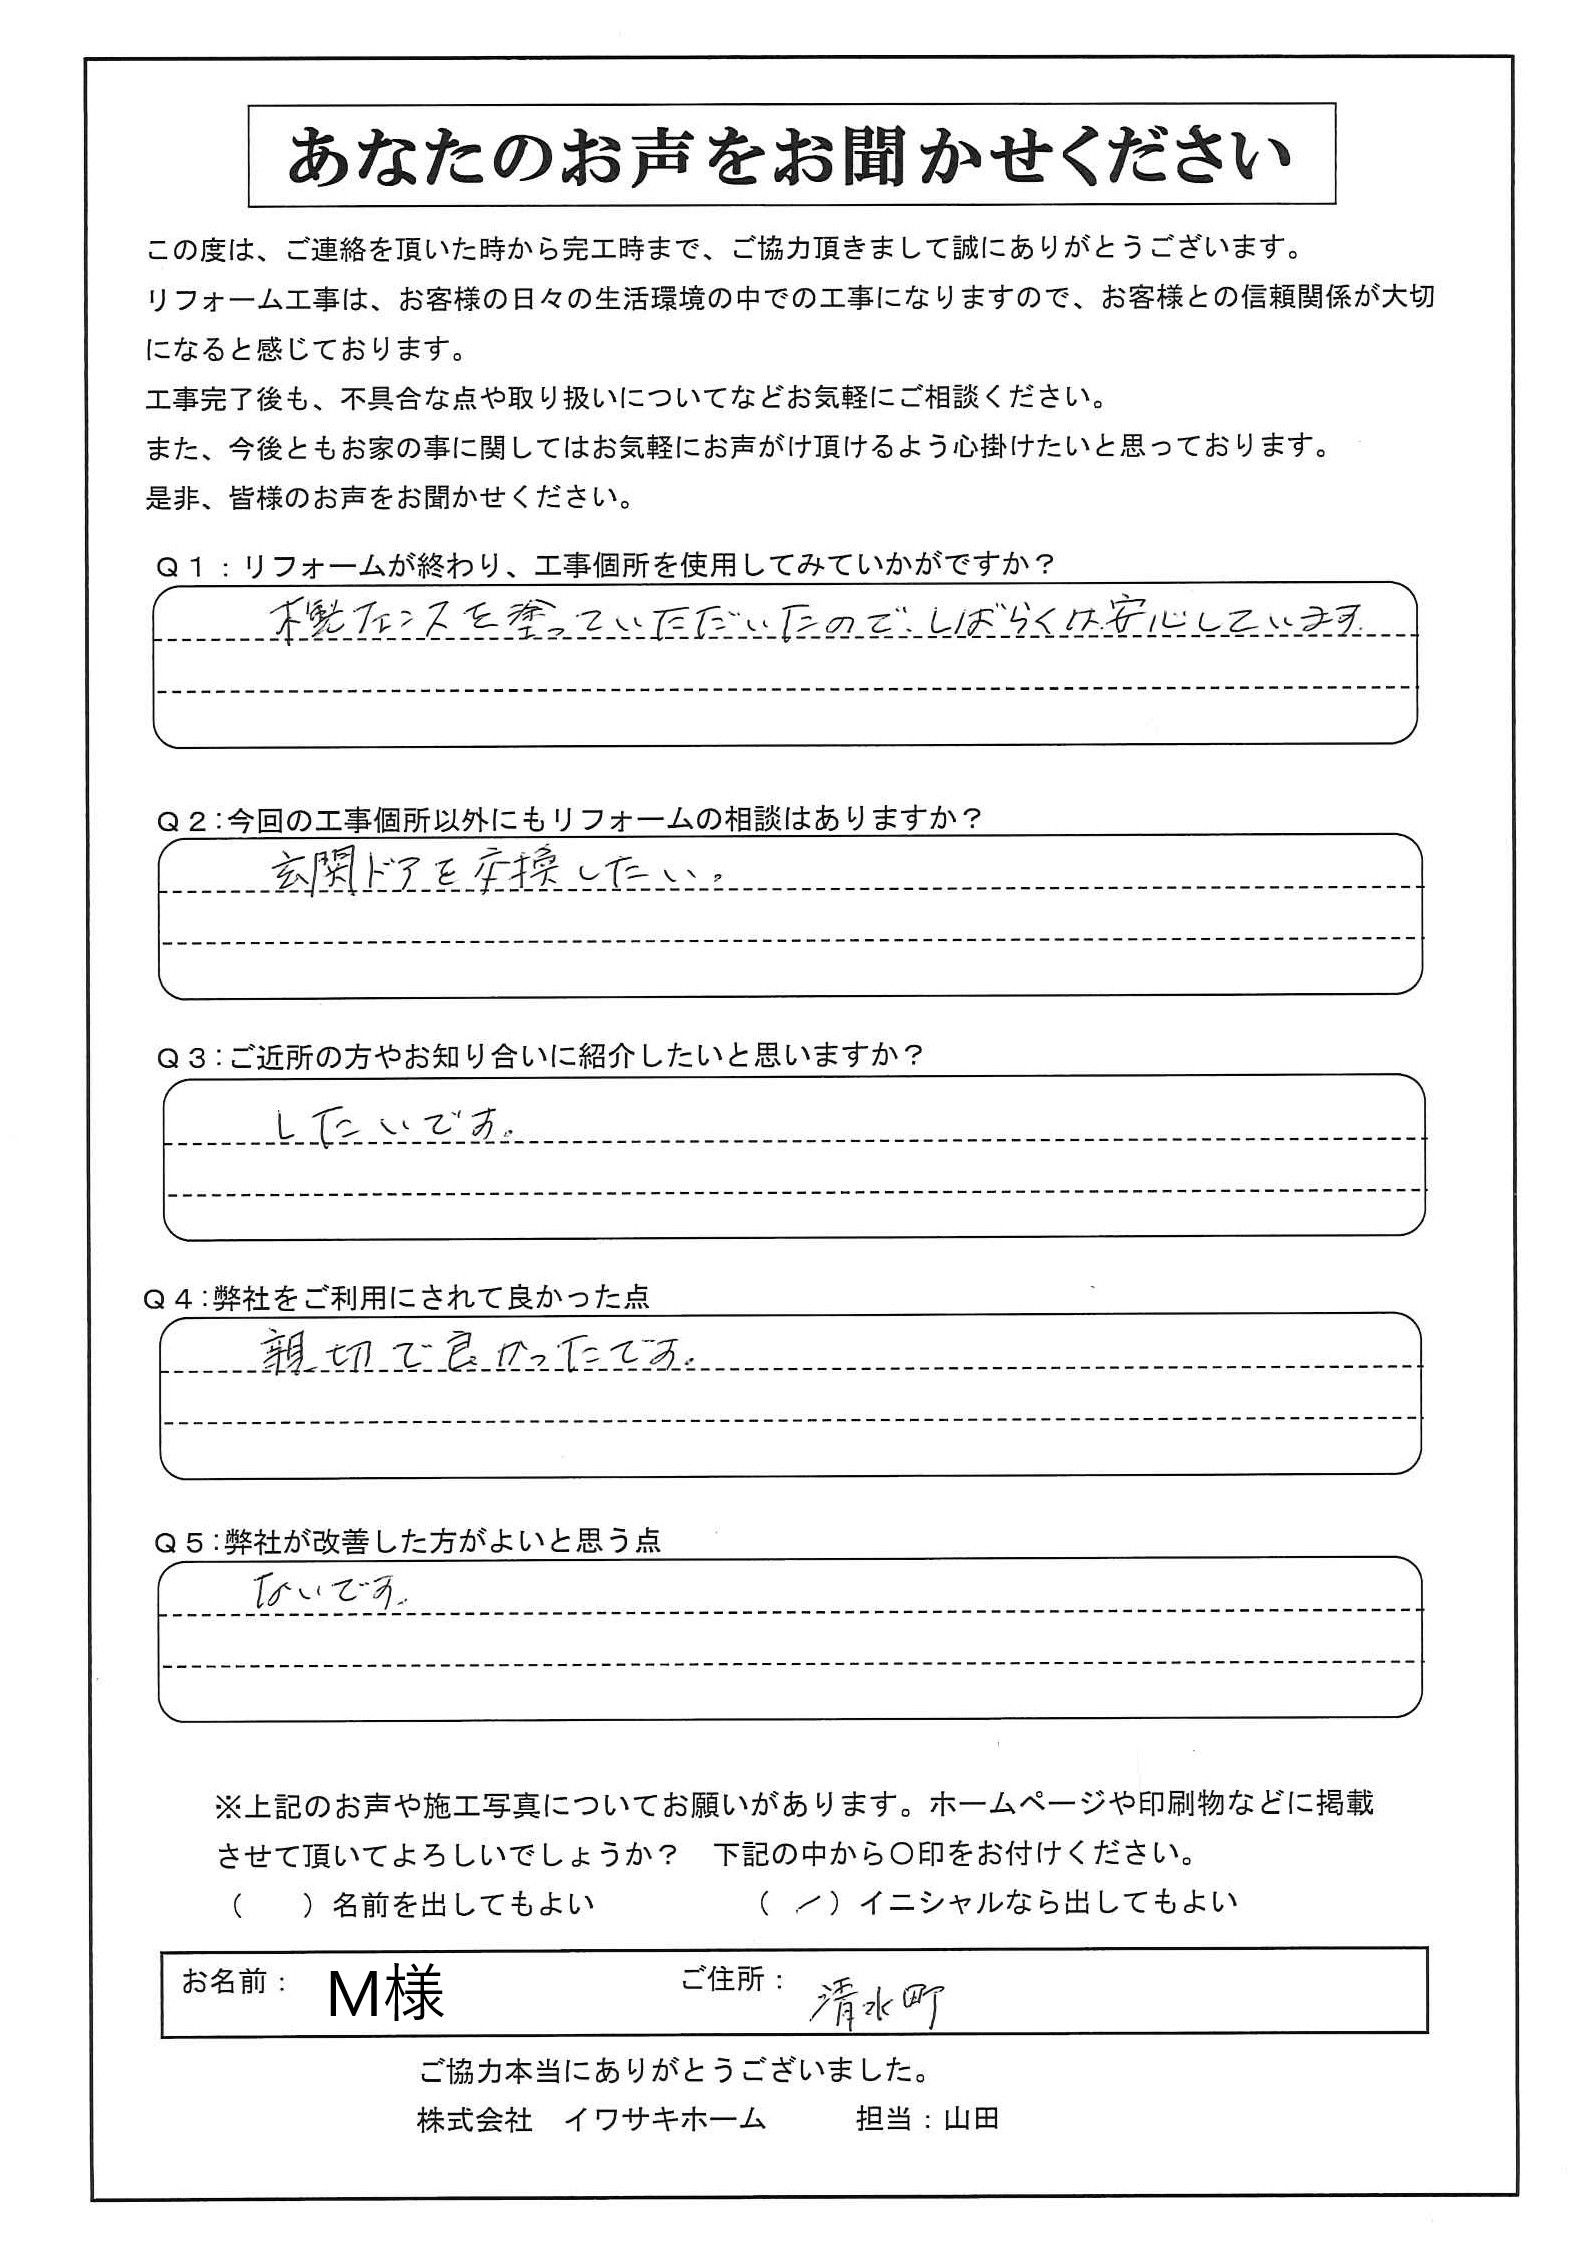 あなたのお声をお聞かせください
この度は、ご連絡を頂いた時から完工時まで、ご協力頂きまして誠にありがとうございます。
リフォーム工事は、お客様の日々の生活環境の中での工事になりますので、お客様との信頼関係が大切
になると感じております。
工事完了後も、不具合な点や取り扱いについてなどお気軽にご相談ください。
また、今後ともお家の事に関してはお気軽にお声がけ頂けるよう心掛けたいと思っております。
是非、皆様のお声をお聞かせください。
Q1：リフォームが終わり、工事個所を使用してみていかがですか？
フェンスを塗っていただいたので、しばらくは安心しています
Q2：今回の工事個所以外にもリフォームの相談はありますか？
玄関ドアを交換したい。
Q3：ご近所の方やお知り合いに紹介したいと思いますか？
したいです。
Q4：弊社をご利用にされて良かった点
親切で良かったです。
Q5：弊社が改善した方がよいと思う点
ないです。
※上記のお声や施工写真についてお願いがあります。ホームページや印刷物などに掲載
させて頂いてよろしいでしょうか？　下記の中から〇印をお付けください。
（　　）名前を出してもよい　（ ／ ）イニシャルなら出してもよい
お名前：　M様　ご住所：　清水町
ご協力本当にありがとうございました。
株式会社　イワサキホーム　担当：山田